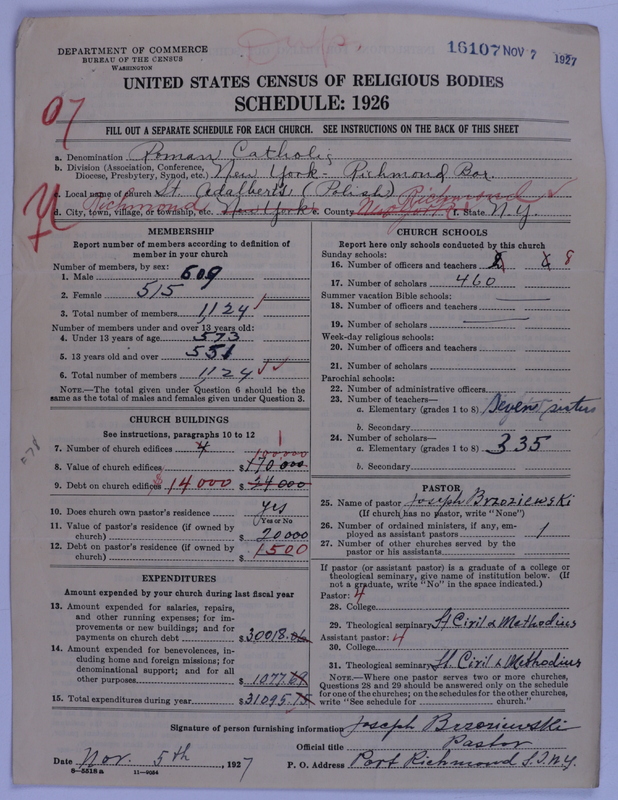 DEPARTMENT OF COMMERCE
BUREAU OF THE CENSUS
WASHINGTON
16107 NOV 7 1927
UNITED STATES CENSUS OF RELIGIOUS BODIES
SCHEDULE: 1926
FILL OUT A SEPARATE SCHEDULE FOR EACH CHURCH. SEE INSTRUCTIONS ON THE BACK OF THIS SHEET
a. Denomination Roman Catholic
b. Division (Association, Conference, Diocese, Presbytery, Synod, etc.) New York - Richmond Bor.
c. Local name of church St. Adalberts (Polish)
d. City, town, village, or township, etc. Richmond New York e. County Richmond New York f. State N.Y.
MEMBERSHIP
Report number of members according to definition of
member in your church
Number of members, by sex:
1. Male 609
2. Female 515
3. Total number of members 1,124
Number of members under and over 13 years old:
4. Under 13 years of age 573
5. 13 years old and over 551
6. Total number of members 1,124
NOTE.—The total given under Question 6 should be the
same as the total of males and females given under Question 3.
CHURCH BUILDINGS
See instructions, paragraphs 10 to 12
7. Number of church edifices 4 1
8. Value of church edifices $ 170 000
9. Debt on church edifices $14000 $24000
10. Does church own pastor's residence yes
(Yes or No)
11. Value of pastor's residence (if owned by
church) $20000
12. Debt on pastor's residence (if owned by
church) $1500
EXPENDITURES
Amount expended by your church during last fiscal year
13. Amount expended for salaries, repairs,
and other running expenses; for im-
provements or new buildings; and for
payments on church debt $30018.06
14. Amount expended for benevolences, in-
cluding home and foreign missions; for
denominational support; and for all
other purposes $1077.69
15. Total expenditures during year $31095.75
CHURCH SCHOOLS
Report here only schools conducted by this church
Sunday schools:
16. Number of officers and teachers 8
17. Number of scholars 460
Summer vacation Bible schools:
18. Number of officers and teachers
19. Number of scholars
Week-day religious schools:
20. Number of officers and teachers
21. Number of scholars
Parochial schools:
22. Number of administrative officers
23. Number of teachers—
a. Elementary (grades 1 to 8) Seven sisters
b. Secondary
24. Number of scholars—
a. Elementary (grades 1 to 8) 335
b. Secondary
PASTOR
25. Name of pastor Joseph Brzoziewski
(If church has no pastor, write "None")
26. Number of ordained ministers, if any, em-
ployed as assistant pastors 1
27. Number of other churches served by the
pastor or his assistants
If pastor (or assistant pastor) is a graduate of a college or
theological seminary, give name of institution below. (If
not a graduate, write "No" in the space indicated.)
Pastor: 4
28. College
29. Theological seminary St Ciril & Methodius
Assistant pastor: 4
30. College
31. Theological seminary St. Ciril & Methodius
NOTE.—Where one pastor serves two or more churches,
Questions 28 and 29 should be answered only on the schedule
for one of the churches; on the schedules for the other churches,
write "See schedule for church."
Signature of person furnishing information Joseph Brzoziewski
Official title Pastor
Date Nov. 5th, 1927 P. O. Address Port Richmond S.I. N.Y.
8-5518 a 11-9064